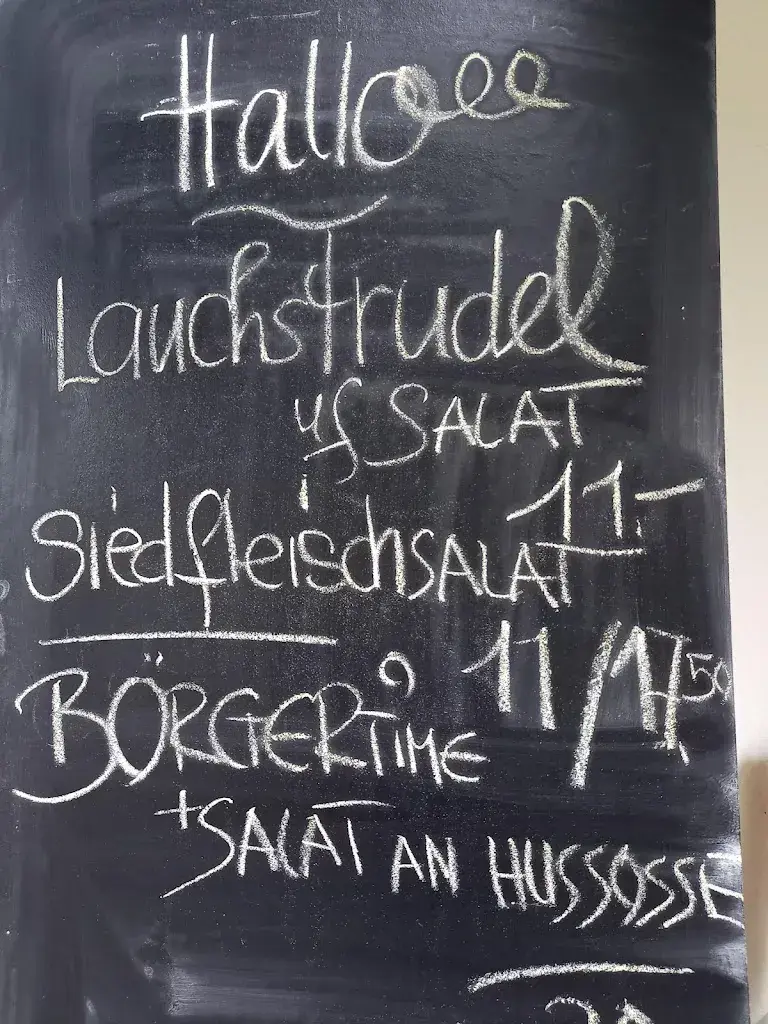 Hallo
Lauchstrudel
uf SALAT
11.-
SiedfleischSALAT
11/17.50
BÖRGERTIME
+SALAT AN HUSSOSSE